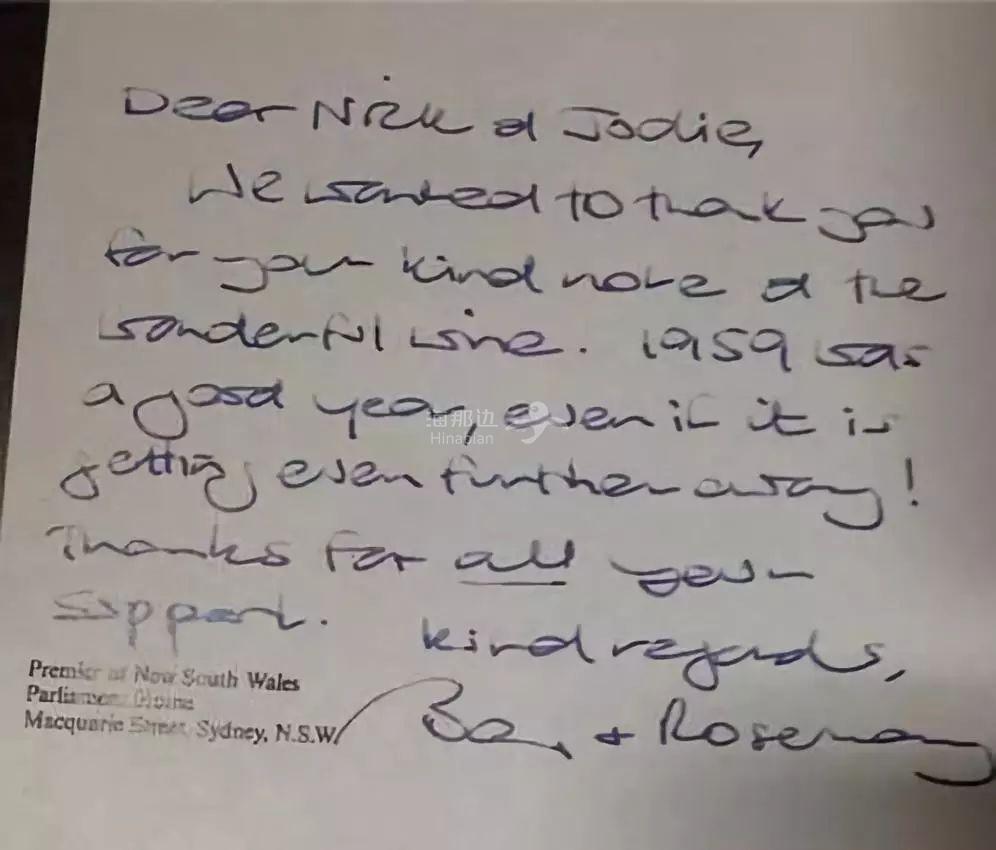 Dear Nick & Jodie,
We wanted to thank you
for your kind note & the
wonderful wine. 1959 was
a good year, even if it is
getting even further away!
Thanks for all your
support.
kind regards,
Premier of New South Wales
Parliament House
Macquarie Street, Sydney, N.S.W.
+ Rosemary
海那边
Hinabian